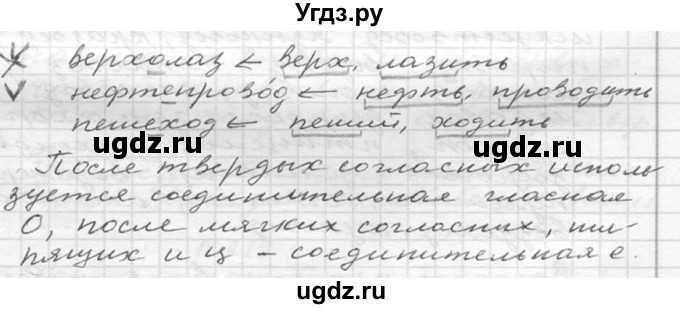 Угдз.ру
верхолаз ← верх, лазить
нефтепровóд ← нефть, проводить
пешеход ← пеший, ходить
ugdz.ru ugdz.ru
После твердых согласных исполь
зуется соединительная гласная
О, после мягких согласных, ши-
пящих и ц - соединительная е.
ugdz.ru ugdz.ru
ugdz.ru